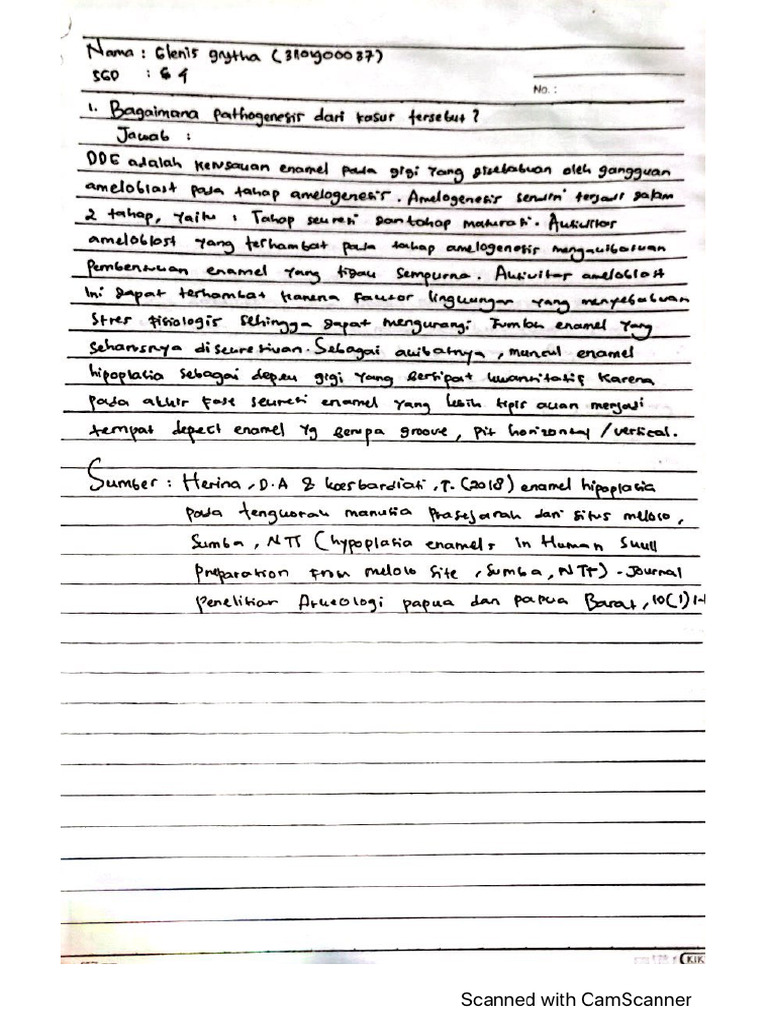 Nama : Glenis gnytha (31101900037)
SGD : G 9
No. :
1. Bagaimana pathogenesis dari kasus tersebut?
Jawab :
DDE adalah kerusakan enamel pada gigi yang disebabkan oleh gangguan
ameloblast pada tahap amelogenesis. Amelogenesis sendiri terjadi dalam
2 tahap, yaitu : Tahap sekresi dan tahap maturasi. Aktivitas
ameloblast yang terhambat pada tahap amelogenesis mengakibatkan
Pembentukan enamel yang tidak sempurna. Aktivitas ameloblast
ini dapat terhambat karena faktor lingkungan yang menyebabkan
stres fisiologis sehingga dapat mengurangi Jumlah enamel yang
seharusnya disekresikan. Sebagai akibatnya, muncul enamel
hipoplasia sebagai depek gigi yang bersipat kwantitatif karena
pada akhir fase sekresi enamel yang lebih tipis akan menjadi
tempat depect enamel yg berupa groove, pit horizontal / vertical.
Sumber : Herina, D.A & koesbardiati, T. (2018) enamel hipoplasia
pada tengkorak manusia Prasejarah dari situs melolo,
Sumba, NTT (hypoplasia enamels in Human Skull
Preparation From melolo Site, Sumba, NTT) - Journal
Penelitian Arkeologi papua dan papua Barat, 10(1)
KIK
Scanned with CamScanner